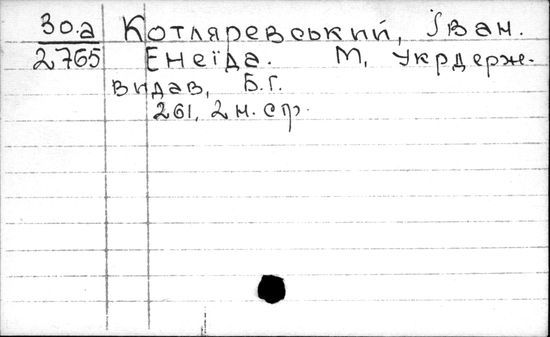 30.а Котляревський, Іван.
2765 Енеїда. М, Укрдерж-
видав, Б.Г.
261, 2 н. стр.